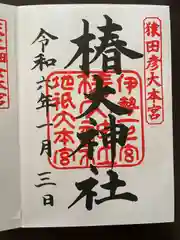 猿田彦大本宮
伊勢一之宮
椿大神社
地祇大本宮
令和六年一月三日